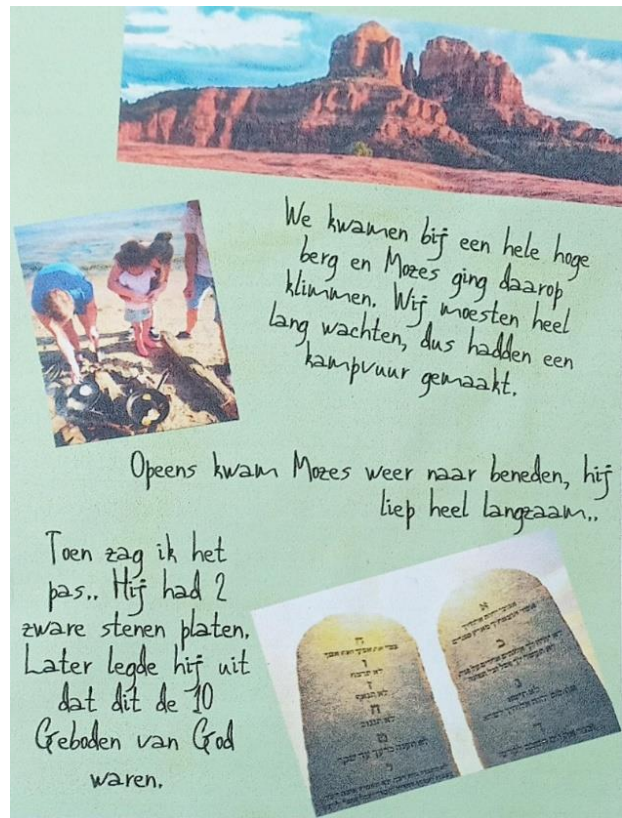 We kwamen bij een hele hoge
berg en Mozes ging daarop
klimmen. Wij moesten heel
lang wachten, dus hadden een
kampvuur gemaakt.
Opeens kwam Mozes weer naar beneden, hij
liep heel langzaam..
Toen zag ik het
pas.. Hij had 2
zware stenen platen.
Later legde hij uit
dat dit de 10
Geboden van God
waren.
ה
ו
לא תרצח
ז
לא תנאף
ח
לא תגנוב
ט
א
ב
ג
ד